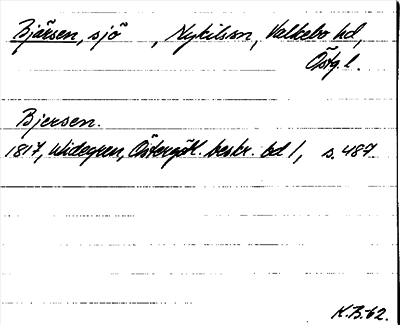 Bjärsen, sjö , Nykilsn, Valkebo hd,
Östgl.
Bjersen.
1817, Widegren, Östergötl. beskr. bd 1, s. 487
K.B-62.